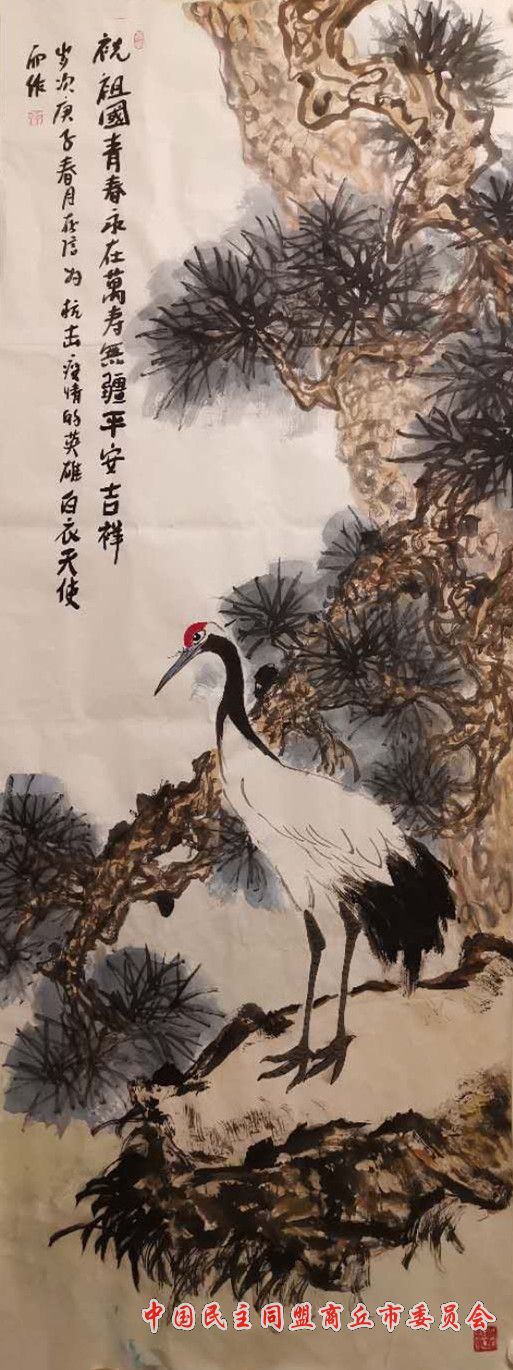 祝祖國青春永在萬寿無疆平安吉祥
岁次庚子春月在信为抗击疫情的英雄白衣天使
而作
中国民主同盟商丘市委员会